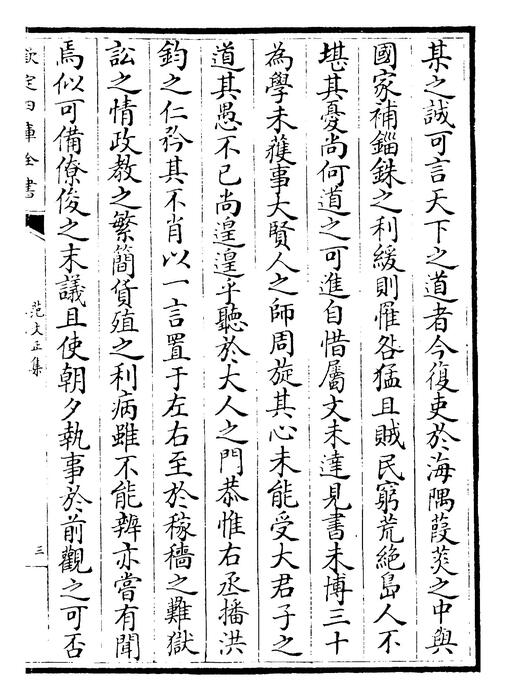 某之誠可言天下之道者今復吏於海隅葭菼之中與
國家補錙銖之利緩則罹咎猛且賊民窮荒絶島人不
堪其憂尚何道之可進自惜屬文未達見書未博三十
為學未蒦事大賢人之師周旋其心未能受大君子之
道其愚不已尚遑遑乎聽於大人之門恭惟右丞播洪
鈞之仁矜其不肖以一言置于左右至於稼穡之難獄
訟之情政教之繁簡貨殖之利病雖不能辨亦嘗有聞
焉似可備僚俊之末議且使朝夕執事於前觀之可否
欽定四庫全書
范文正集
三